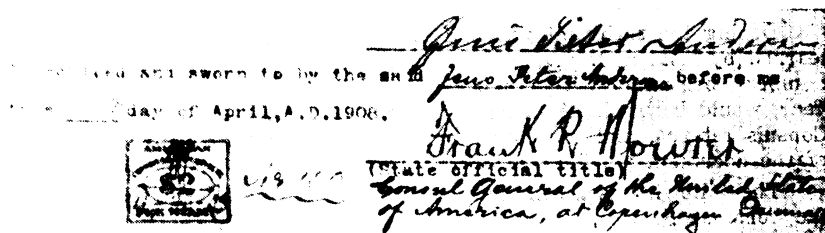 Jens Peter Andersen
and sworn to by the said Jens Peter Andersen before me
day of April, A.D. 1908.
Frank R. Mowrer
(State official title)
Consul General of the United States
of America, at Copenhagen, Denmark